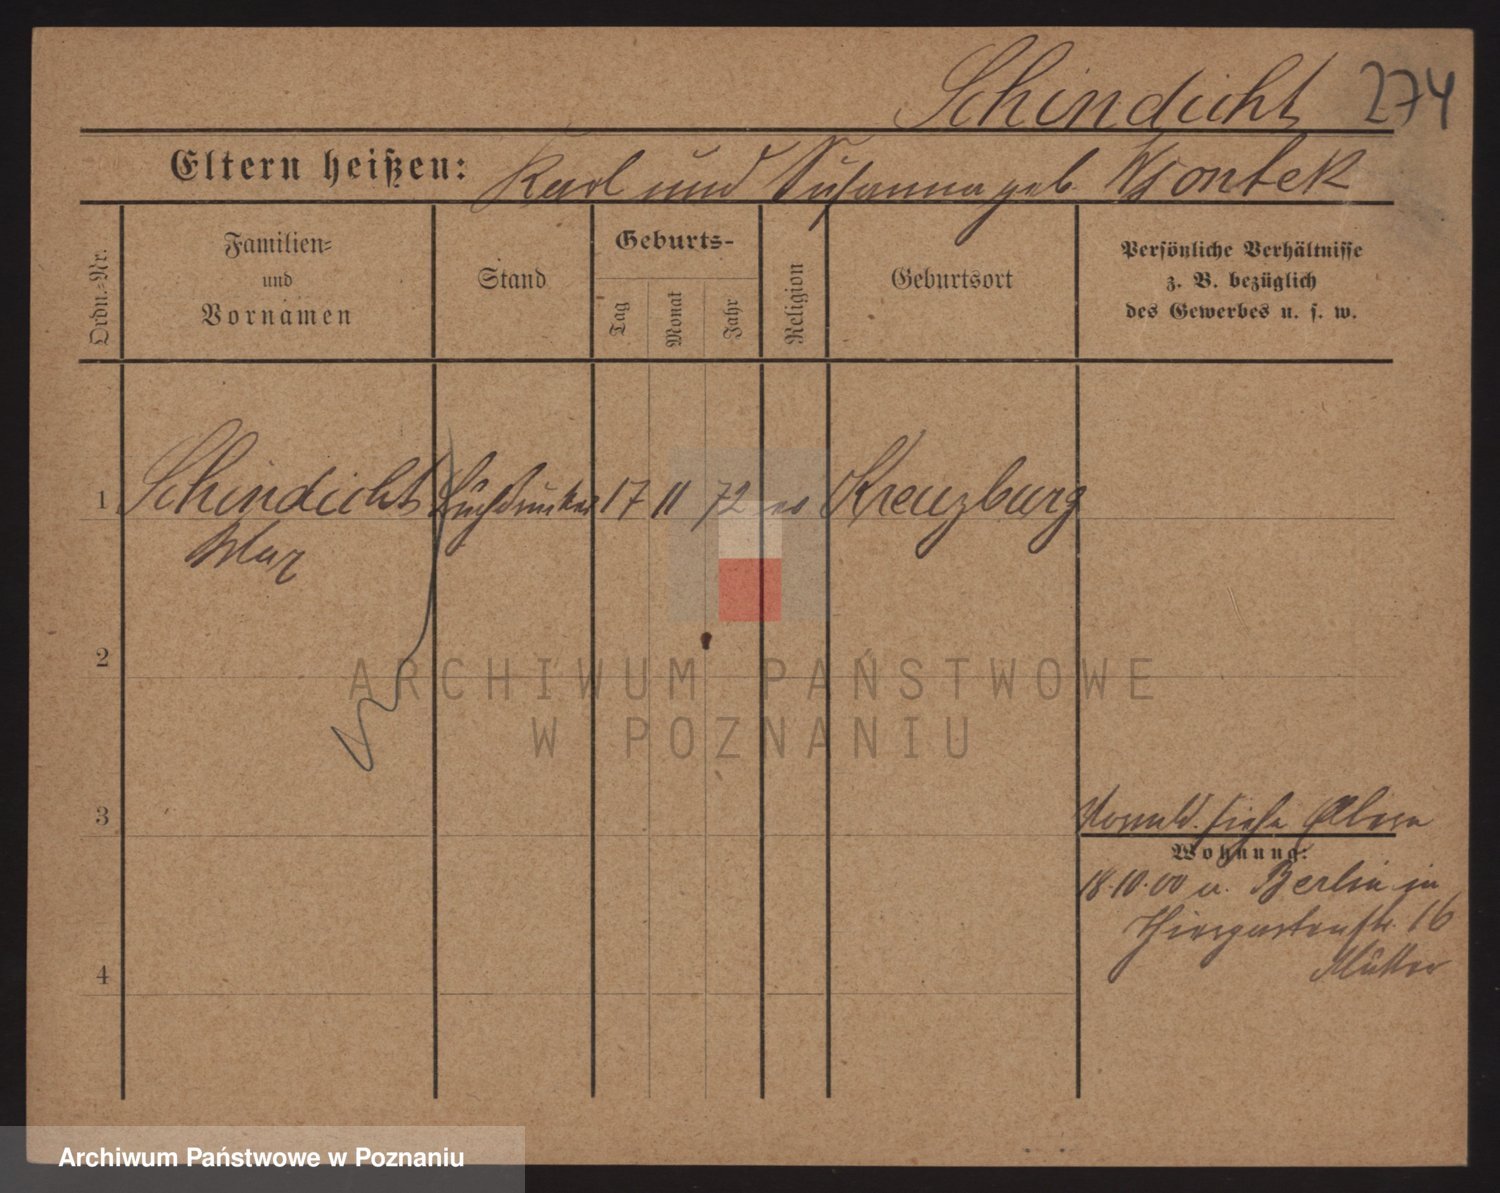 Schindicht 274
Eltern heißen: Karl und Susanna geb. Wrontek
Ordn.-Nr.
Familien-
und
Vornamen
Stand
Geburts-
Tag
Monat
Jahr
Religion
Geburtsort
Persönliche Verhältnisse
z. B. bezüglich
des Gewerbes u. s. w.
1 Schindicht Buchdrucker 17 11 72 ev Kreuzburg
Max
2
ARCHIWUM PAŃSTWOWE
W POZNANIU
3
siehe
Wohnung:
18.10.00 v. Berlin in
Thiergartenstr. 16
4
Archiwum Państwowe w Poznaniu